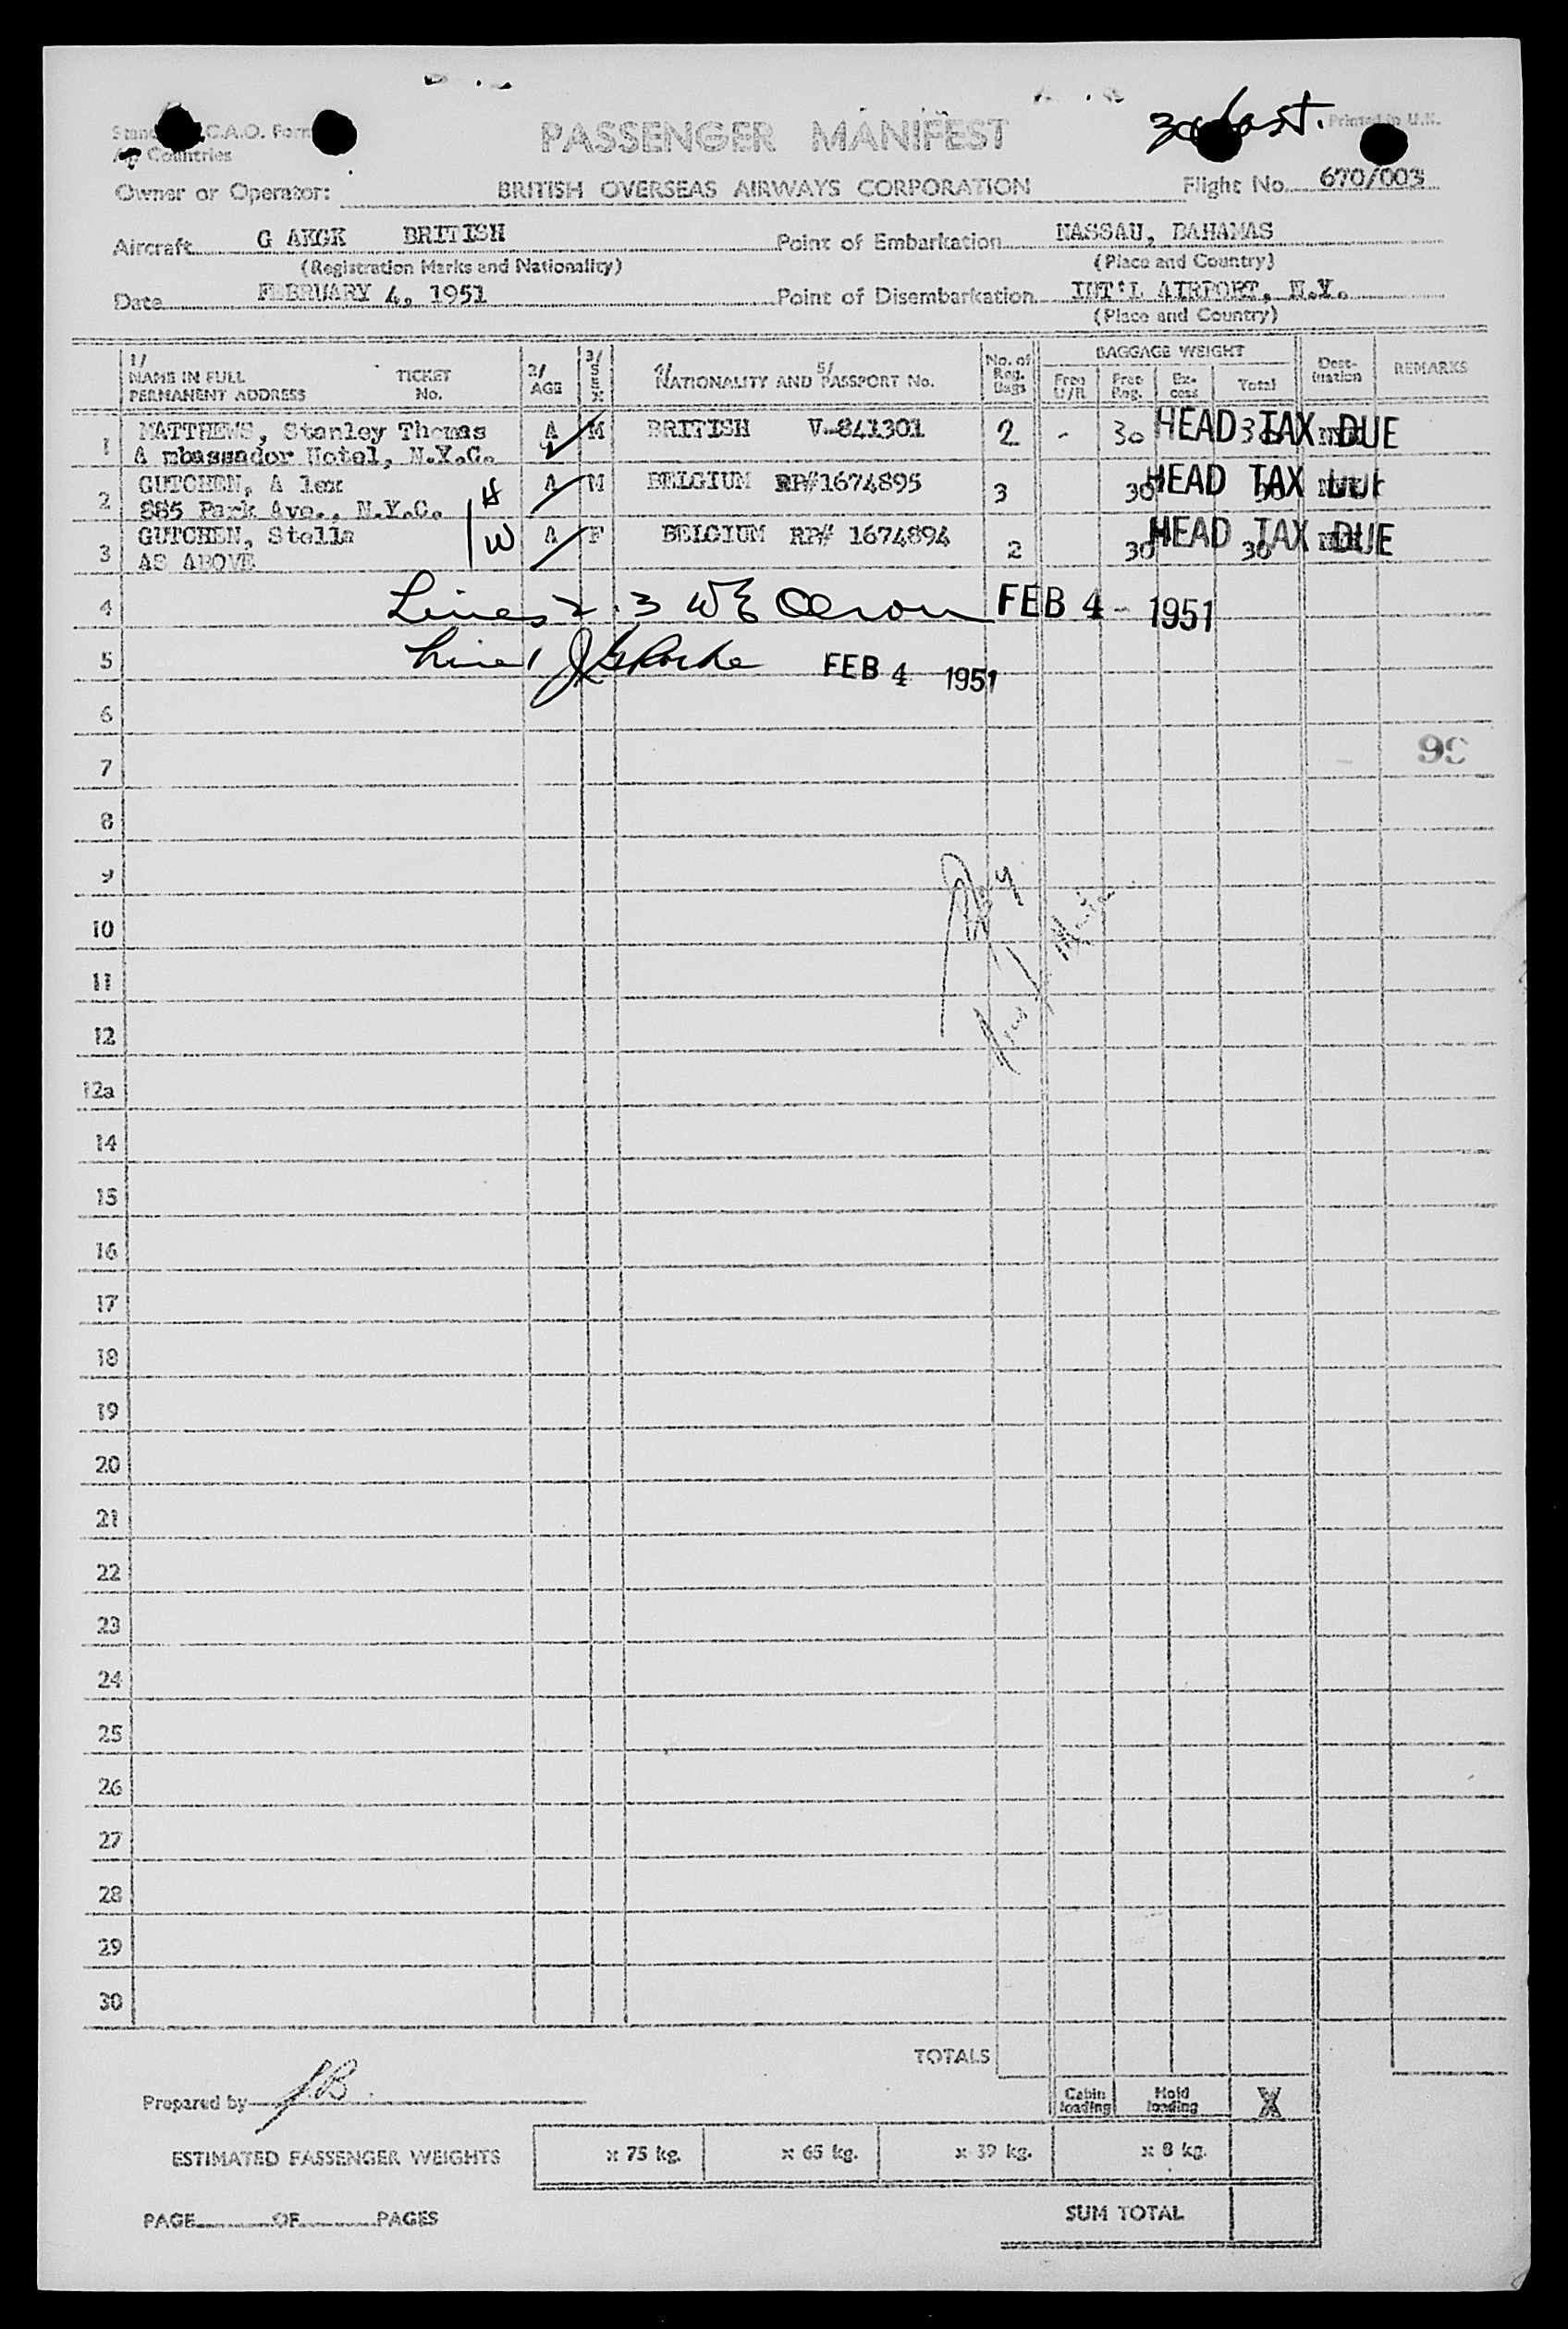 PASSENGER MANIFEST
Printed in U.K.
Countries
Owner or Operator: BRITISH OVERSEAS AIRWAYS CORPORATION Flight No. 670/003
Aircraft G AKGK BRITISH Point of Embarkation NASSAU, BAHAMAS
(Registration Marks and Nationality) (Place and Country)
Date FEBRUARY 4, 1951 Point of Disembarkation INT'L AIRPORT, N.Y.
(Place and Country)
1/ NAME IN FULL PERMANENT ADDRESS TICKET No. 2/ AGE 3/ SEX 4/ NATIONALITY AND 5/ PASSPORT No. No. of Reg. Bags BAGGAGE WEIGHT Free U/R Free Reg. Ex-cess Total Dest-ination REMARKS
1 MATTHEWS, Stanley Thomas A M BRITISH V-841301 2 - 30 HEAD TAX DUE 30
A mbassador Hotel, N.Y.C.
2 GUTCHEN, A lex H A M BELGIUM RP#1674895 3 30 HEAD TAX DUE 30
885 Park Ave., N.Y.C.
3 GUTCHEN, Stella W A F BELGIUM RP# 1674894 2 30 HEAD TAX DUE 30
AS ABOVE
4 Lines 2 . 3 FEB 4 - 1951
5 Line 1 FEB 4 1951
6
7
8
9
10
11
12
12a
14
15
16
17
18
19
20
21
22
23
24
25
26
27
28
29
30
TOTALS
Prepared by JB Cabin loading Hold loading X
ESTIMATED PASSENGER WEIGHTS x 75 kg. x 65 kg. x 39 kg. x 8 kg.
PAGE OF PAGES SUM TOTAL